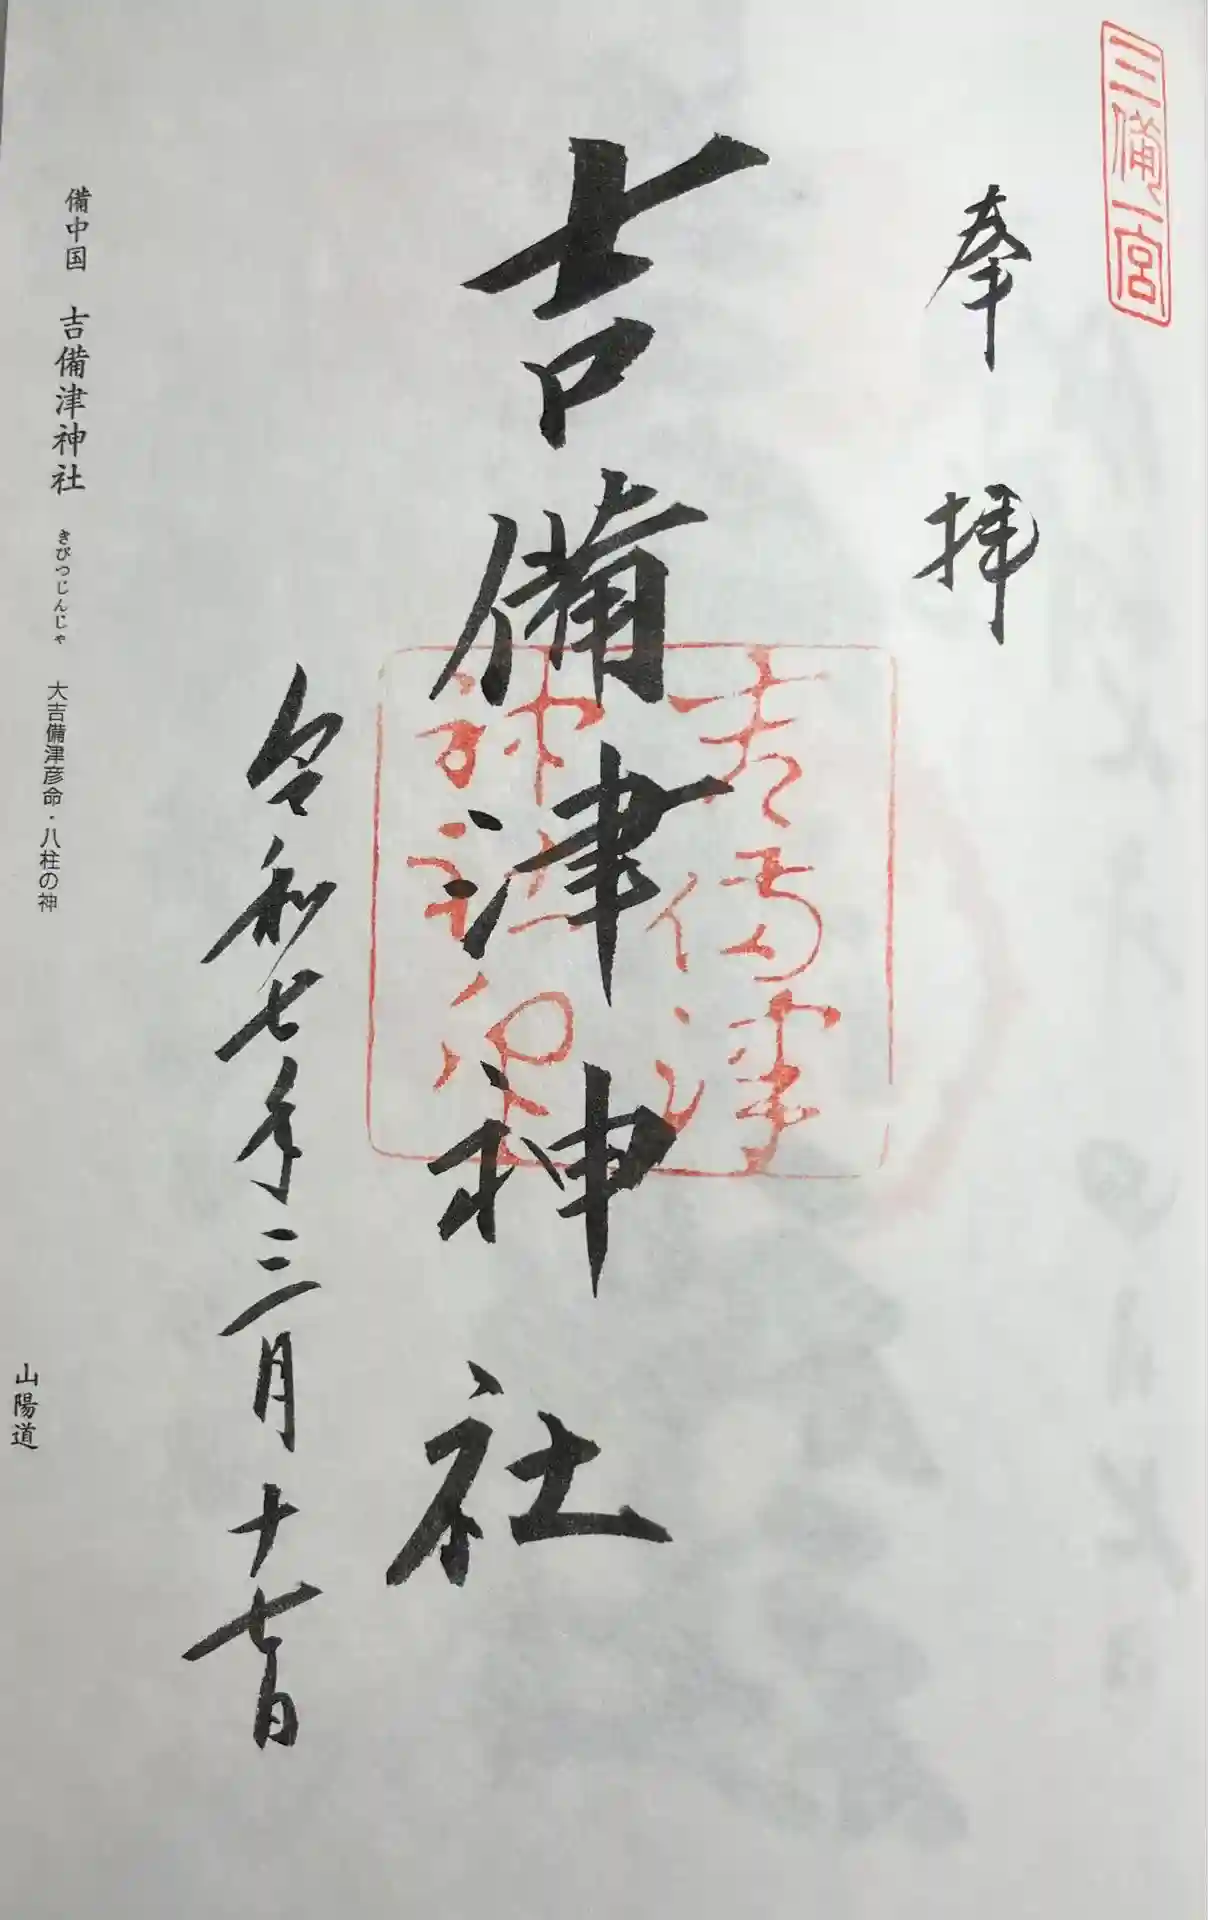 三備一宮
奉拝
吉備津神社
吉備津
神社
令和七年三月十七日
備中国 吉備津神社 きびつじんじゃ 大吉備津彦命・八柱の神
山陽道